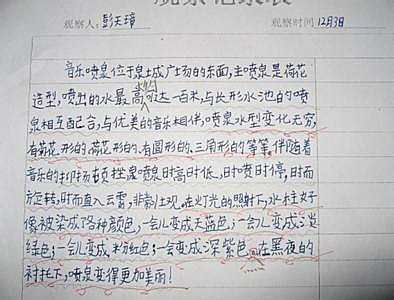 观察记录表
观察人：彭天璋 观察时间 12月3日
音乐喷泉位于泉城广场的东面，主喷泉是荷花
造型，喷出的水最高 可达一百米，与长形水池的喷
泉相互配合，与优美的音乐相伴，喷泉水型变化无穷，
有菊花形的、荷花形的、有圆形的、三角形的等等。伴随着
音乐的抑扬顿挫喷泉时高时低，时喷时停，时而
旋转，时而直入云霄，非常壮观。在灯光的照射下，水柱好
像被染成了各种颜色，一会儿变成天蓝色，一会儿变成淡
绿色；一会儿变成粉红色；一会变成深紫色。在黑夜的
衬托下，喷泉变得更加美丽！